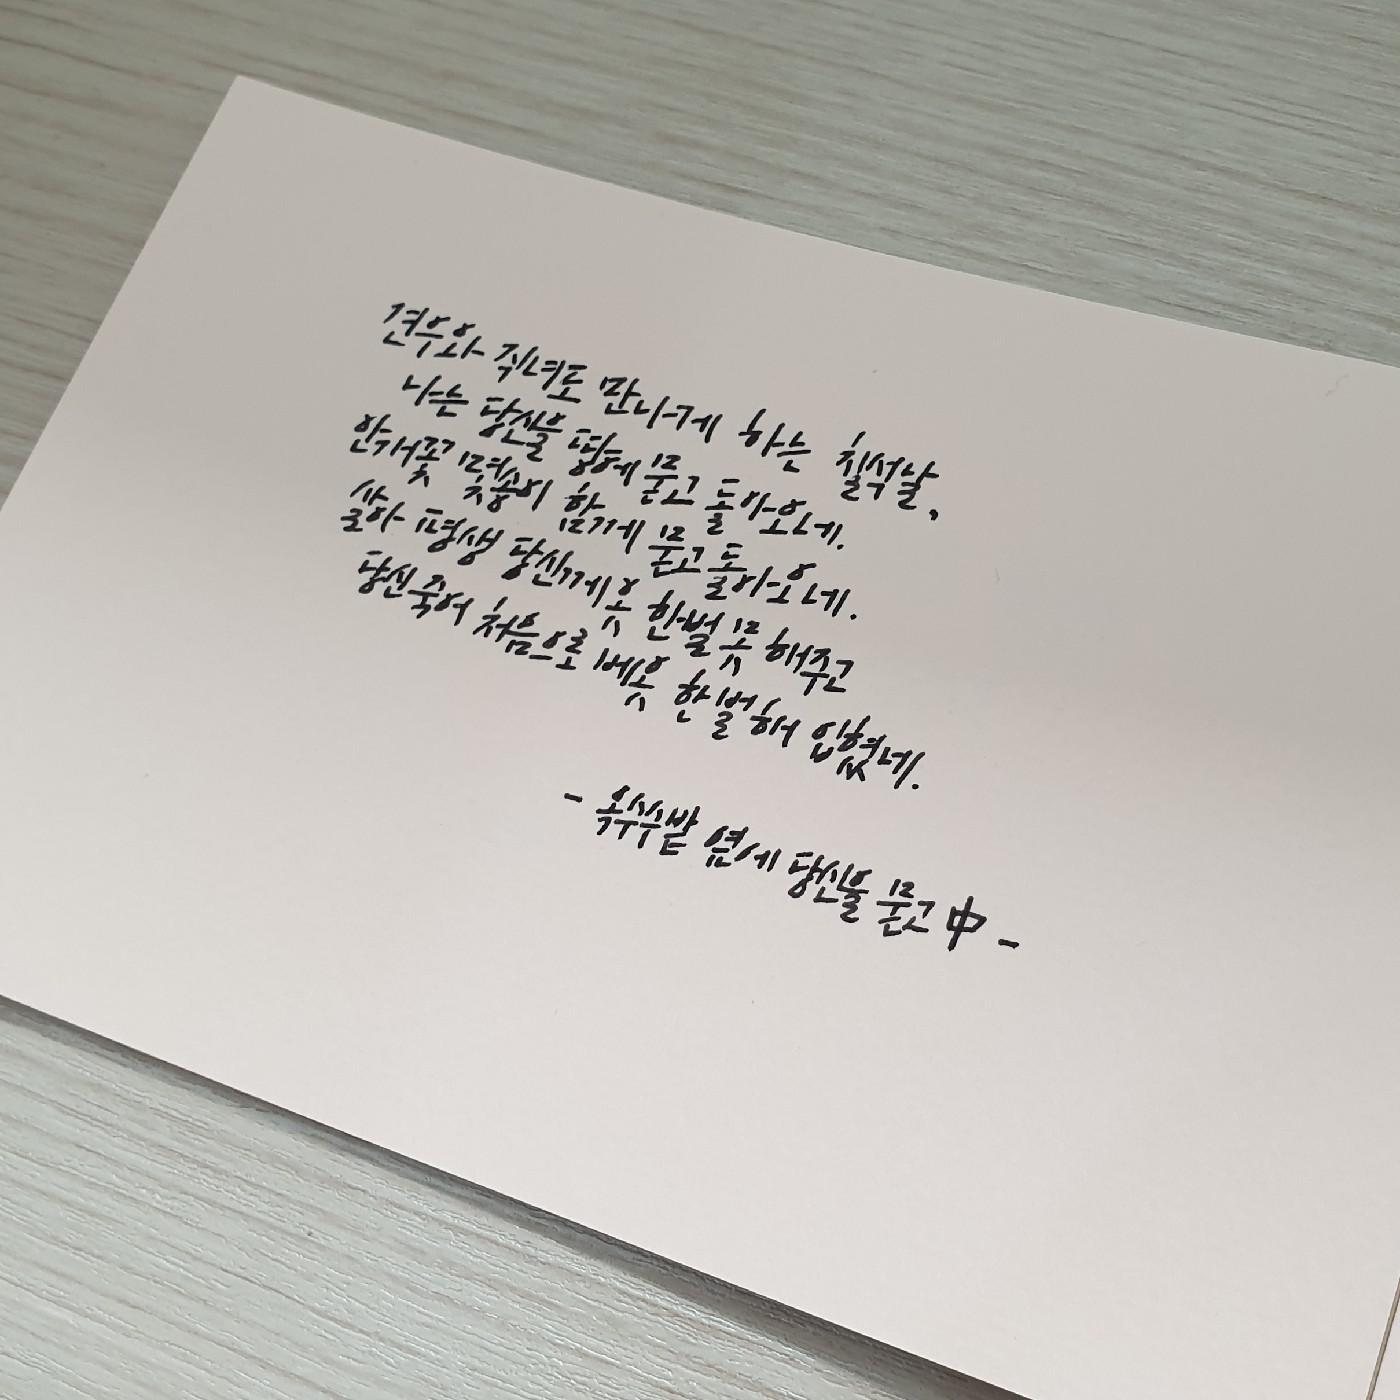 견우와 직녀도 만나게 하는 칠석날,
나는 당신을 땅에 묻고 돌아오네.
안개꽃 몇송이 함께 묻고 돌아오네.
살아 평생 당신께 옷 한벌 못 해주고
당신 죽어 처음으로 베옷 한 벌 해 입혔네.
- 옥수수밭 옆에 당신을 묻고 中 -